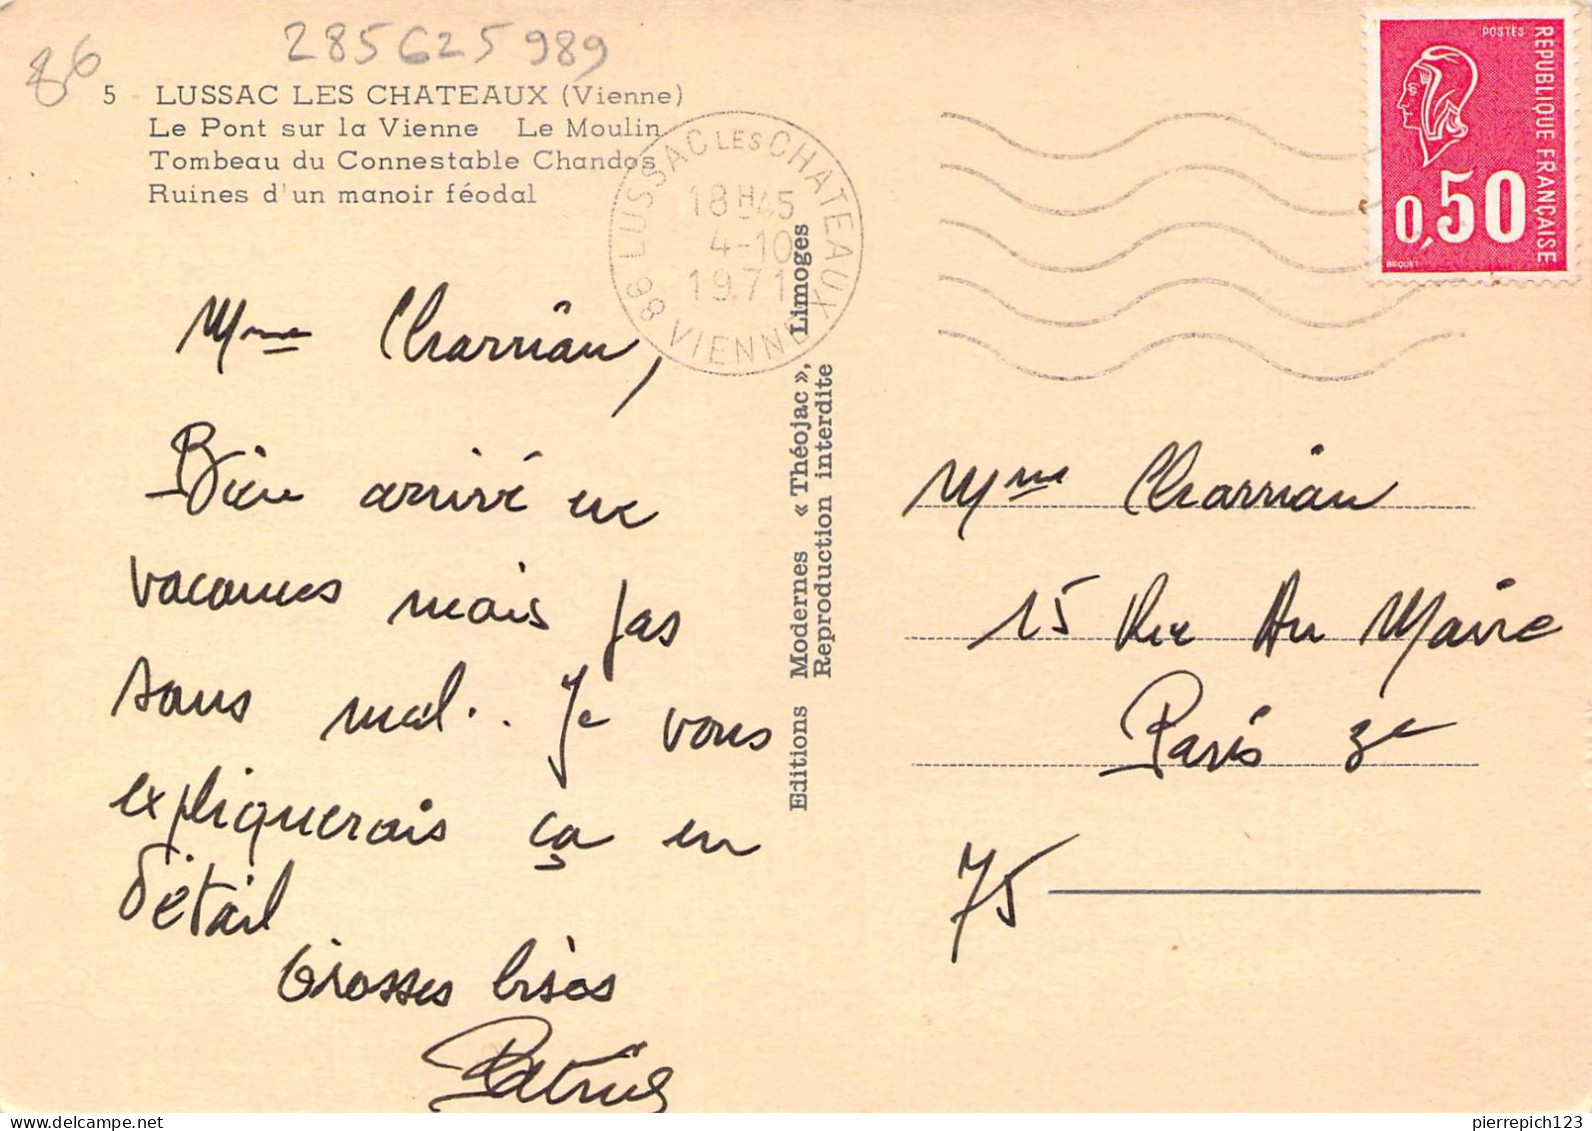 86
285625989
5 - LUSSAC LES CHATEAUX (Vienne)
Le Pont sur la Vienne Le Moulin
Tombeau du Connestable Chandos
Ruines d'un manoir féodal
86 LUSSAC LES CHATEAUX VIENNE
18H45
4-10
1971
POSTES
REPUBLIQUE FRANÇAISE
0,50
BEQUET
Mme Charrian,
Bien arrivé en
vacances mais pas
sans mal.. Je vous
expliquerais ça en
détail
Grosses bises
Patrick
Editions Modernes « Théojac », Limoges
Reproduction interdite
Mme Charrian
15 Rue Au Maire
Paris 3e
75
pierrepich123